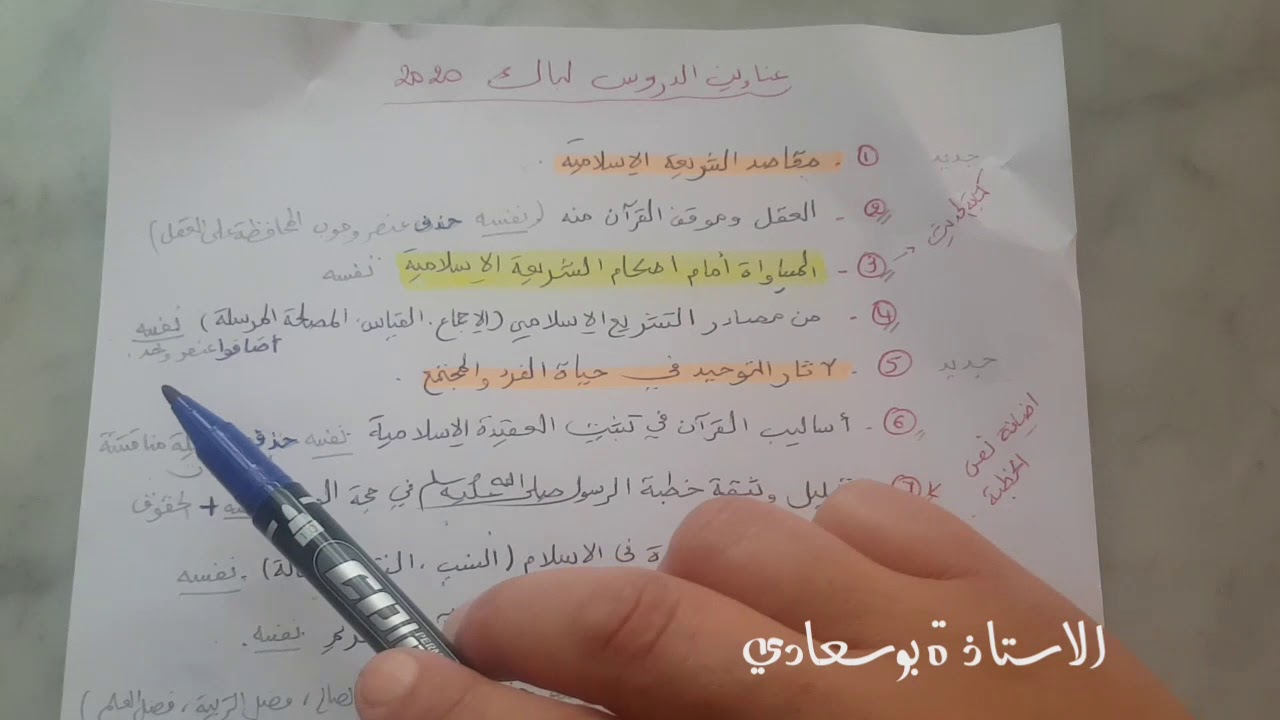 عناوين الدروس لباك 2020
جديد ① . مقاصد الشريعة الإسلامية .
② - العقل وموقف القرآن منه (نفسه حذف عنصر وجوب المحافظة على العقل)
③ - المساواة أمام احكام الشريعة الإسلامية نفسه
④ - من مصادر التشريع الإسلامي (الإجماع، القياس، المصلحة المرسلة) نفسه
أضافوا عنصر واحد .
جديد ⑤ . آثار التوحيد في حياة الفرد والمجتمع .
⑥ . أساليب القرآن في تثبيت العقيدة الإسلامية نفسه حذف مناقشة
اضافة نص
الخطبة
⑦ وثيقة خطبة الرسول صلى الله عليه وسلم في حجة + الحقوق
في الاسلام (النسب، ) . نفسه
نفسه .
فضل التربية، فضل العلم)
الاستاذة بوسعادي